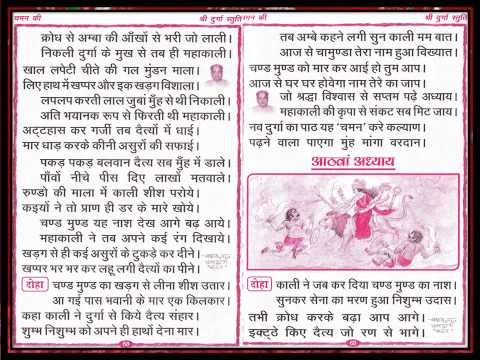 चमन की
श्री दुर्गा स्तुति
क्रोध से अम्बा की आँखों से भरी जो लाली।
निकली दुर्गा के मुख से तब ही महाकाली।
खाल लपेटी चीते की गल मुंडन माला।
लिए हाथ में खप्पर और इक खड़ग विशाला।
लपलप करती लाल जुबां मुँह से थी निकाली।
अति भयानक रूप से फिरती थी महाकाली।
अट्टहास कर गर्जी तब दैत्यों में धाई।
मार धाड़ करके कीनी असुरों की सफाई।
पकड़ पकड़ बलवान दैत्य सब मुँह में डाले।
पाँवों नीचे पीस दिए लाखों मतवाले।
रुण्डो की माला में काली शीश परोये।
कइयों ने तो प्राण ही डर के मारे खोये।
चण्ड मुण्ड यह नाश देख आगे बढ़ आये।
महाकाली ने तब अपने कई रंग दिखाये।
खड़ग से ही कई असुरों के टुकड़े कर दीने।
खप्पर भर भर कर लहू लगी दैत्यों का पीने।
दोहा चण्ड मुण्ड का खड़ग से लीना शीश उतार।
आ गई पास भवानी के मार एक किलकार।
कहा काली ने दुर्गा से किये दैत्य संहार।
शुम्भ निशुम्भ को अपने ही हाथों देना मार।
चमन की
श्री दुर्गा स्तुति
तब अम्बे कहने लगी सुन काली मम बात।
आज से चामुण्डा तेरा नाम हुआ विख्यात।
चण्ड मुण्ड को मार कर आई हो तुम आप।
आज से घर घर होवेगा नाम तेरे का जाप।
जो श्रद्धा विश्वास से सप्तम पढ़े अध्याय।
महाकाली की कृपा से संकट सब मिट जाय।
नव दुर्गा का पाठ यह 'चमन' करे कल्याण।
पढ़ने वाला पाएगा मुंह मांगा वरदान।
आठवां अध्याय
दोहा काली ने जब कर दिया चण्ड मुण्ड का नाश।
सुनकर सेना का मरण हुआ निशुम्भ उदास।
तभी क्रोध करके बढ़ा आप आगे।
इकट्ठे किए दैत्य जो रण से भागे।